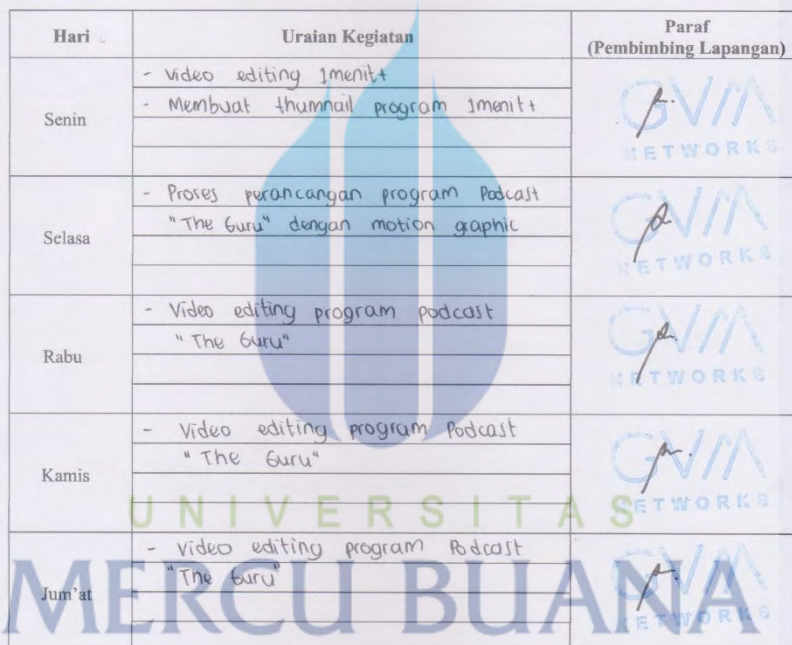 Hari Uraian Kegiatan Paraf
(Pembimbing Lapangan)
Senin
- Video editing 1menit+
- Membuat thumnail program 1menit+
GVM
NETWORKS
Selasa
- Proses perancangan program Podcast
"The Guru" dengan motion graphic
GVM
NETWORKS
Rabu
- Video editing program podcast
"The Guru"
GVM
NETWORKS
Kamis
- Video editing program Podcast
"The Guru"
GVM
NETWORKS
Jum'at
- Video editing program Podcast
"The Guru"
GVM
NETWORKS
UNIVERSITAS
MERCU BUANA